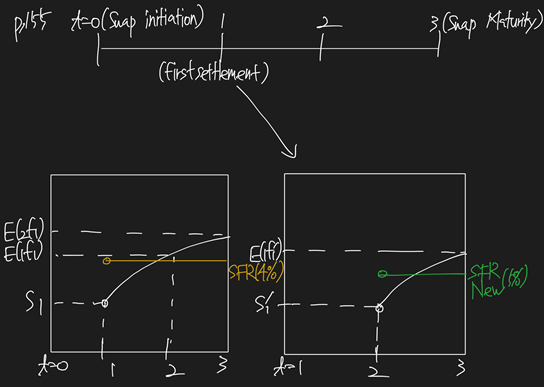 p.155 t=0 (Swap initiation) 1 2 3 (Swap Maturity)
(first settlement)
E(2f1)
E(1f1)
SFR(4%)
S1
t=0 1 2 3
E(1f1')
SFR
New (5%)
S1'
t=1 2 3